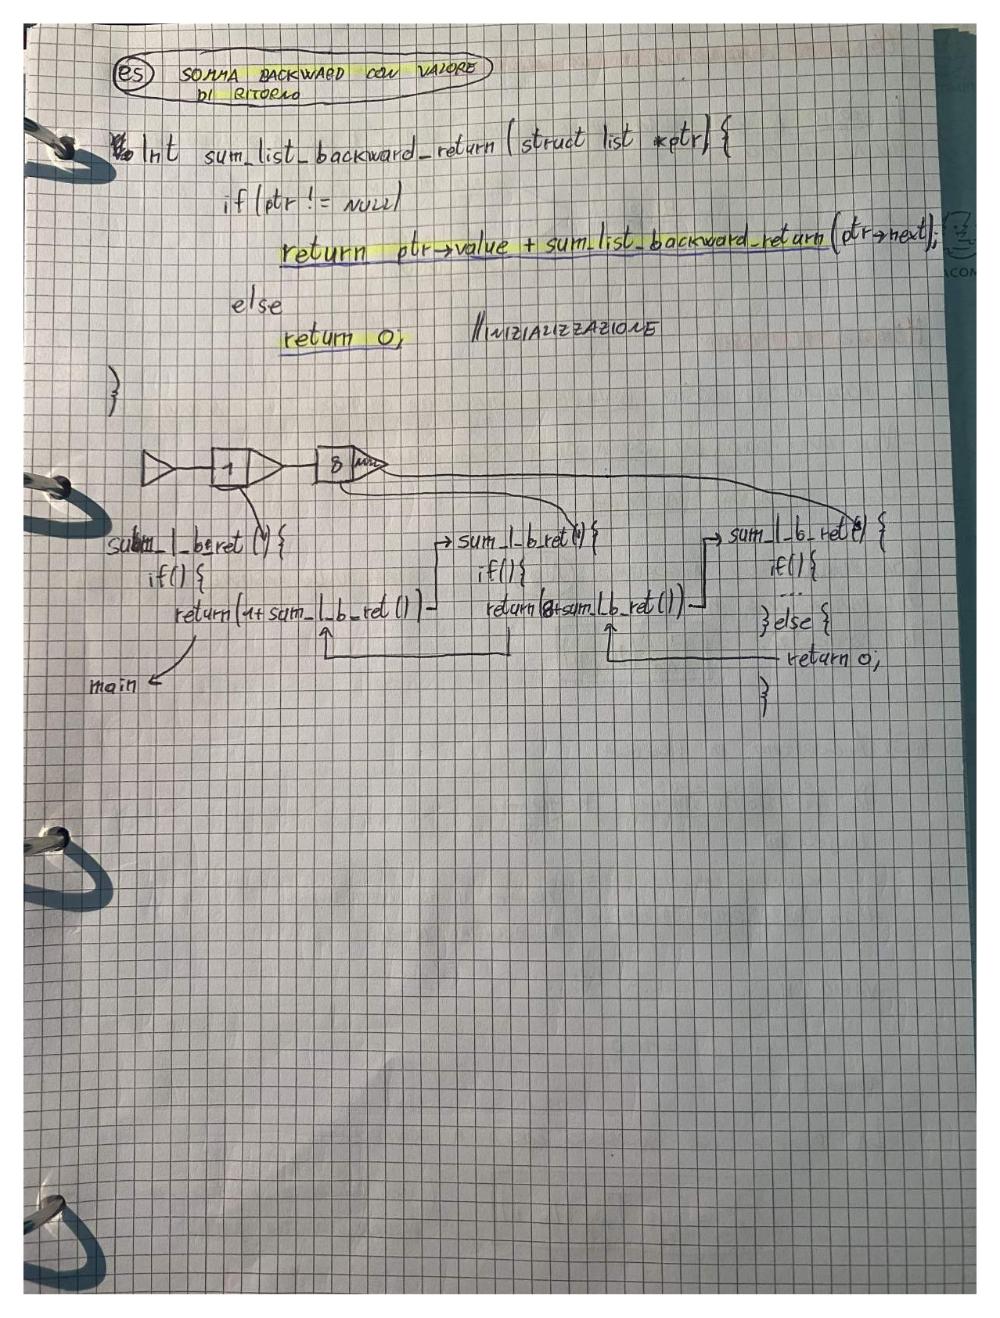 es SOMMA BACKWARD CON VALORE
DI RITORNO
Int sum_list_backward_return (struct list *ptr) {
if (ptr != NULL)
return ptr→value + sum_list_backward_return (ptr→next);
else
return 0; //INIZIALIZZAZIONE
}
1 8 NULL
sum_l_b_ret () { sum_l_b_ret () { sum_l_b_ret () {
if() { if() { if() {
return (1+sum_l_b_ret ()) return (8+sum_l_b_ret ()) ...
} else {
return 0;
main
}